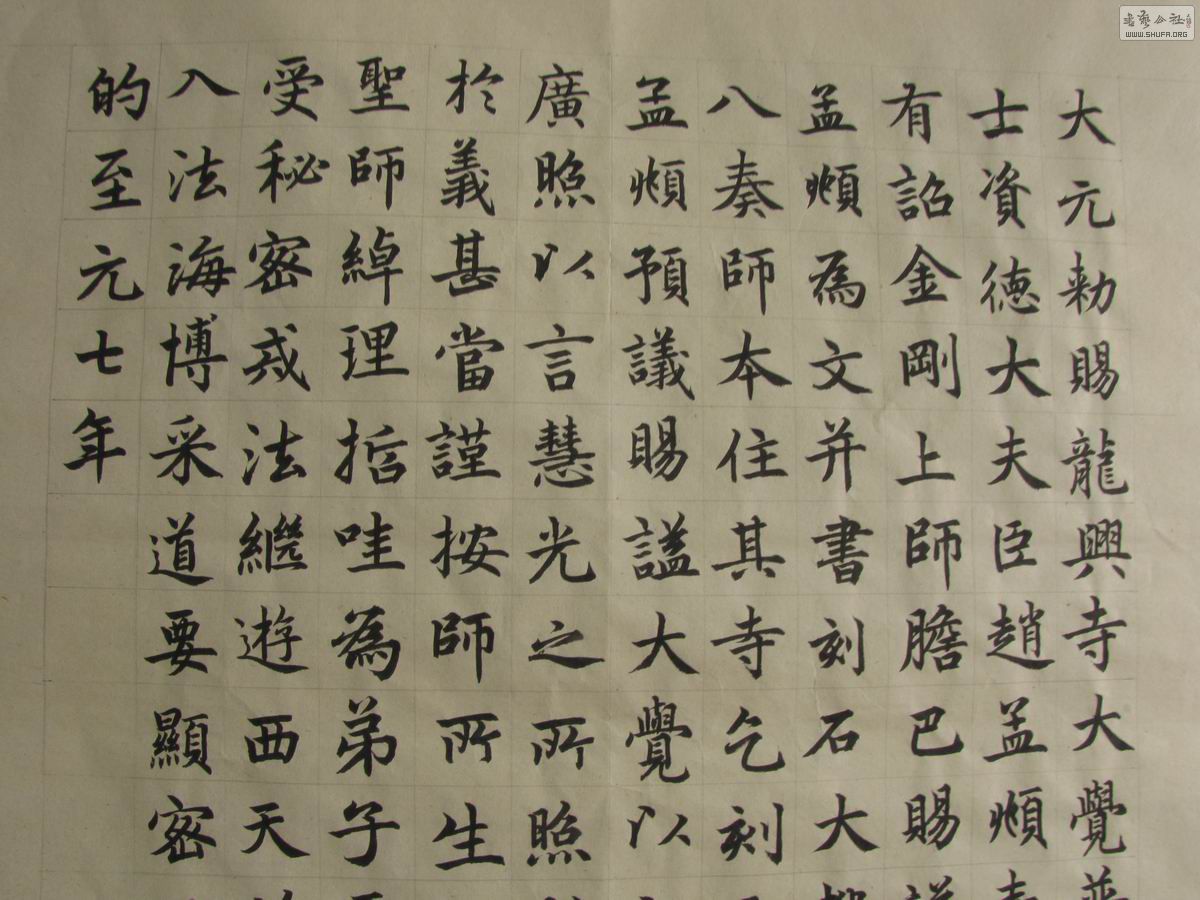 大元勑賜龍興寺大覺普
士資德大夫臣趙孟頫
有詔金剛上師膽巴賜
孟頫為文并書刻石大
八奏師本住其寺乞刻
孟頫預議賜謚大覺以
廣照以言慧光之所照
於義甚當謹按師所生
聖師綽理哲哇為弟子
受秘密戒法繼遊西天
入法海博采道要顯密
的至元七年
書藝公社
WWW.SHUFA.ORG